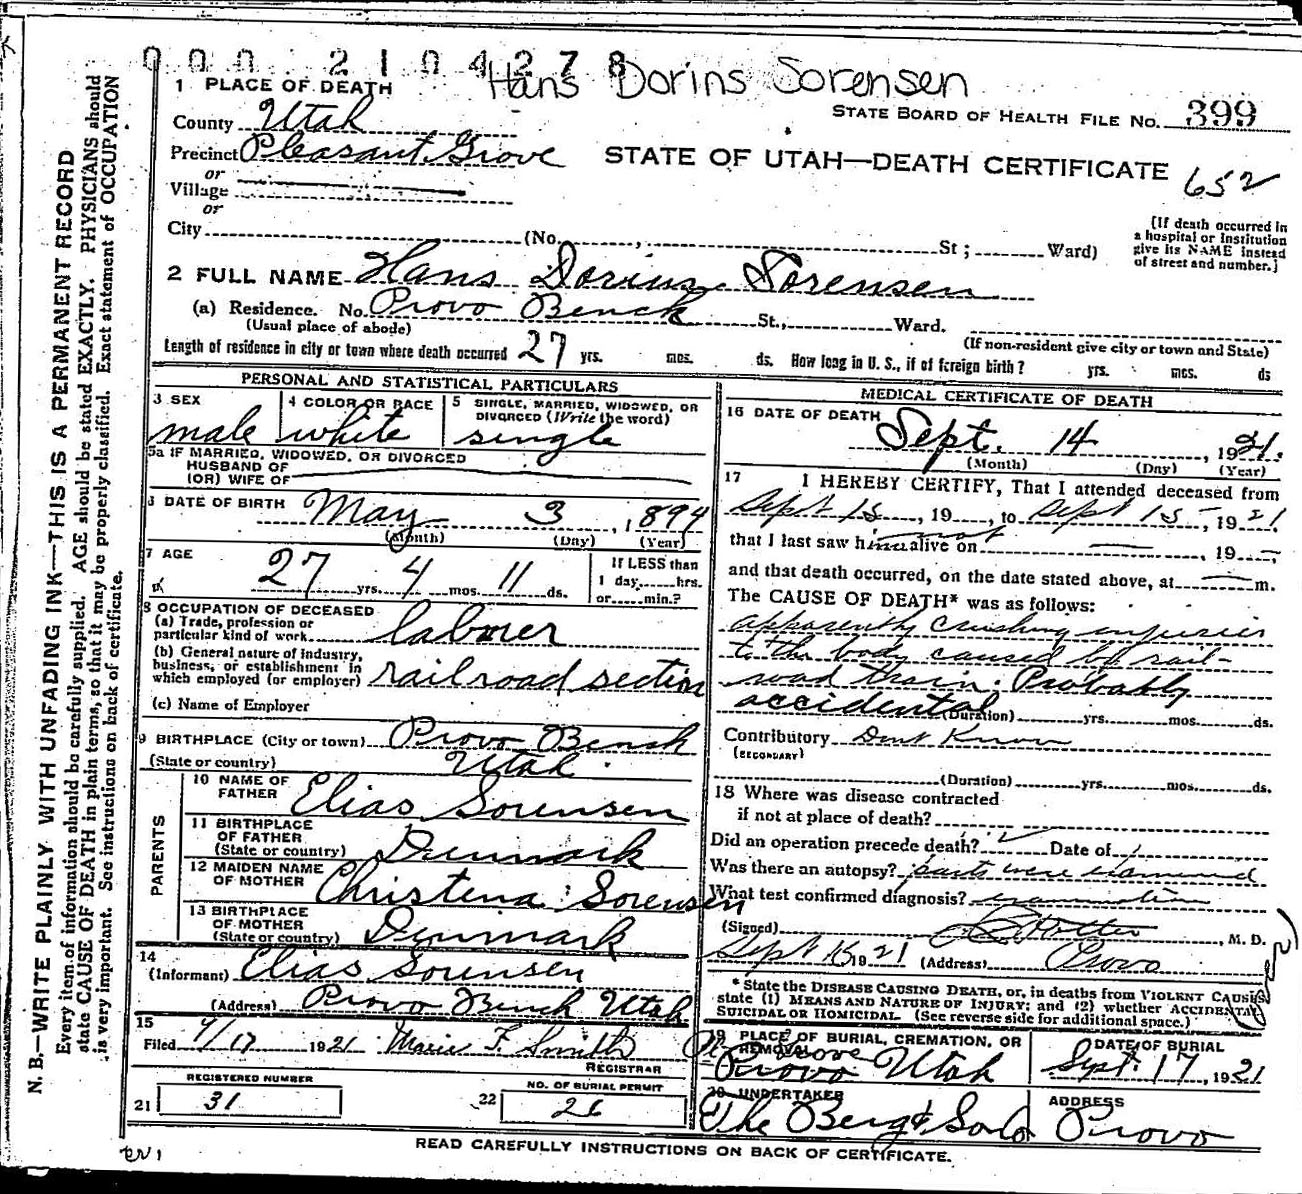 000 2104278
Hans Dorins Sorensen
1 PLACE OF DEATH
STATE BOARD OF HEALTH FILE NO. 399
County Utah
Precinct Pleasant Grove
STATE OF UTAH—DEATH CERTIFICATE 652
or
Village
or
City (No. , St ; Ward)
(If death occurred in a hospital or institution give its NAME instead of street and number.)
2 FULL NAME Hans Dorius Sorensen
(a) Residence. No. Provo Bench St., Ward.
(Usual place of abode) (If non-resident give city or town and State)
Length of residence in city or town where death occurred 27 yrs. mos. ds. How long in U. S., if of foreign birth? yrs. mos. ds
PERSONAL AND STATISTICAL PARTICULARS
3 SEX male
4 COLOR OR RACE white
5 SINGLE, MARRIED, WIDOWED, OR DIVORCED (Write the word) single
5a IF MARRIED, WIDOWED, OR DIVORCED
HUSBAND OF
(OR) WIFE OF
6 DATE OF BIRTH May 3, 1894
(Month) (Day) (Year)
7 AGE 27 yrs. 4 mos. 11 ds.
If LESS than
1 day, hrs.
or min.?
8 OCCUPATION OF DECEASED
(a) Trade, profession or
particular kind of work laborer
(b) General nature of industry,
business, or establishment in
which employed (or employer) railroad section
(c) Name of Employer
9 BIRTHPLACE (City or town) Provo Bench
(State or country) Utah
PARENTS
10 NAME OF FATHER Elias Sorensen
11 BIRTHPLACE OF FATHER (State or country) Denmark
12 MAIDEN NAME OF MOTHER Christena Sorensen
13 BIRTHPLACE OF MOTHER (State or country) Denmark
14
(Informant) Elias Sorensen
(Address) Provo Bench Utah
15
Filed 9/17 1921 Marie F. Smith
REGISTRAR
REGISTERED NUMBER
21 31
NO. OF BURIAL PERMIT
22 26
MEDICAL CERTIFICATE OF DEATH
16 DATE OF DEATH Sept. 14, 1921.
(Month) (Day) (Year)
17 I HEREBY CERTIFY, That I attended deceased from
Sept 15, 19 , to Sept 15, 1921
that I last saw him not alive on , 19
and that death occurred, on the date stated above, at m.
The CAUSE OF DEATH* was as follows:
apparently crushing injuries
to the body caused by rail-
road train. Probably
accidental
(Duration) yrs. mos. ds.
Contributory Dont Know
(SECONDARY)
(Duration) yrs. mos. ds.
18 Where was disease contracted
if not at place of death?
Did an operation precede death? Date of
Was there an autopsy? parts were examined
What test confirmed diagnosis? examination
(Signed) , M. D.
Sept 1921 (Address) Provo
* State the DISEASE CAUSING DEATH, or, in deaths from VIOLENT CAUSES
state (1) MEANS AND NATURE OF INJURY; and (2) whether ACCIDENTAL
SUICIDAL OR HOMICIDAL. (See reverse side for additional space.)
19 PLACE OF BURIAL, CREMATION, OR REMOVAL
Provo Utah
DATE OF BURIAL
Sept. 17, 1921
20 UNDERTAKER
The Berg & Sons
ADDRESS
Provo
READ CAREFULLY INSTRUCTIONS ON BACK OF CERTIFICATE.
N. B.—WRITE PLAINLY WITH UNFADING INK—THIS IS A PERMANENT RECORD
Every item of information should be carefully supplied. AGE should be stated EXACTLY. PHYSICIANS should
state CAUSE OF DEATH in plain terms, so that it may be properly classified. Exact statement of OCCUPATION
is very important. See instructions on back of certificate.